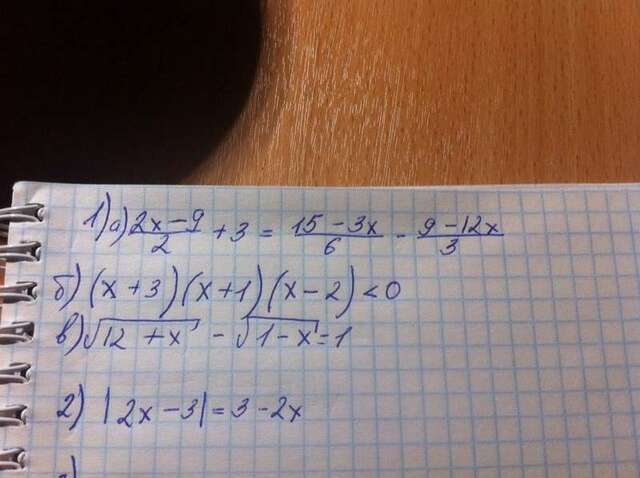 1) а) (2x-9)/2 + 3 = (15-3x)/6 - (9-12x)/3
б) (x+3)(x+1)(x-2)<0
в) √12+x - √1-x = 1
2) |2x-3| = 3-2x